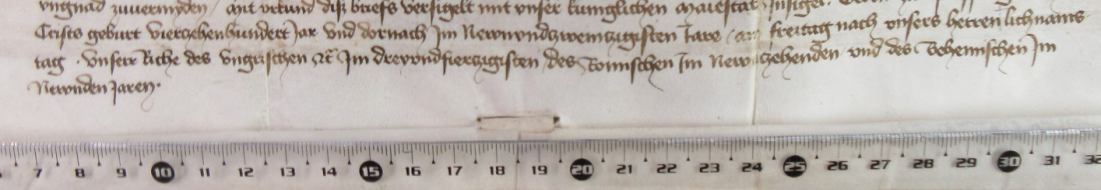 vngnad zuuermyden / mit vrkund diss briefs versigelt mit vnser kuniglichen maiestat Insigel
Crists geburt vierczehenhundert Jar vnd dornach Im Newnvndzweinczigisten Jare / am freitag nach vnsers herren lichnams
tag . Vnserr Riche des vngrischen etc Im drewvndfierczigisten des Romischen Im Newnczehenden vnd des Behemischen Im
Newnden Jaren .
7 8 9 10 11 12 13 14 15 16 17 18 19 20 21 22 23 24 25 26 27 28 29 30 31 32